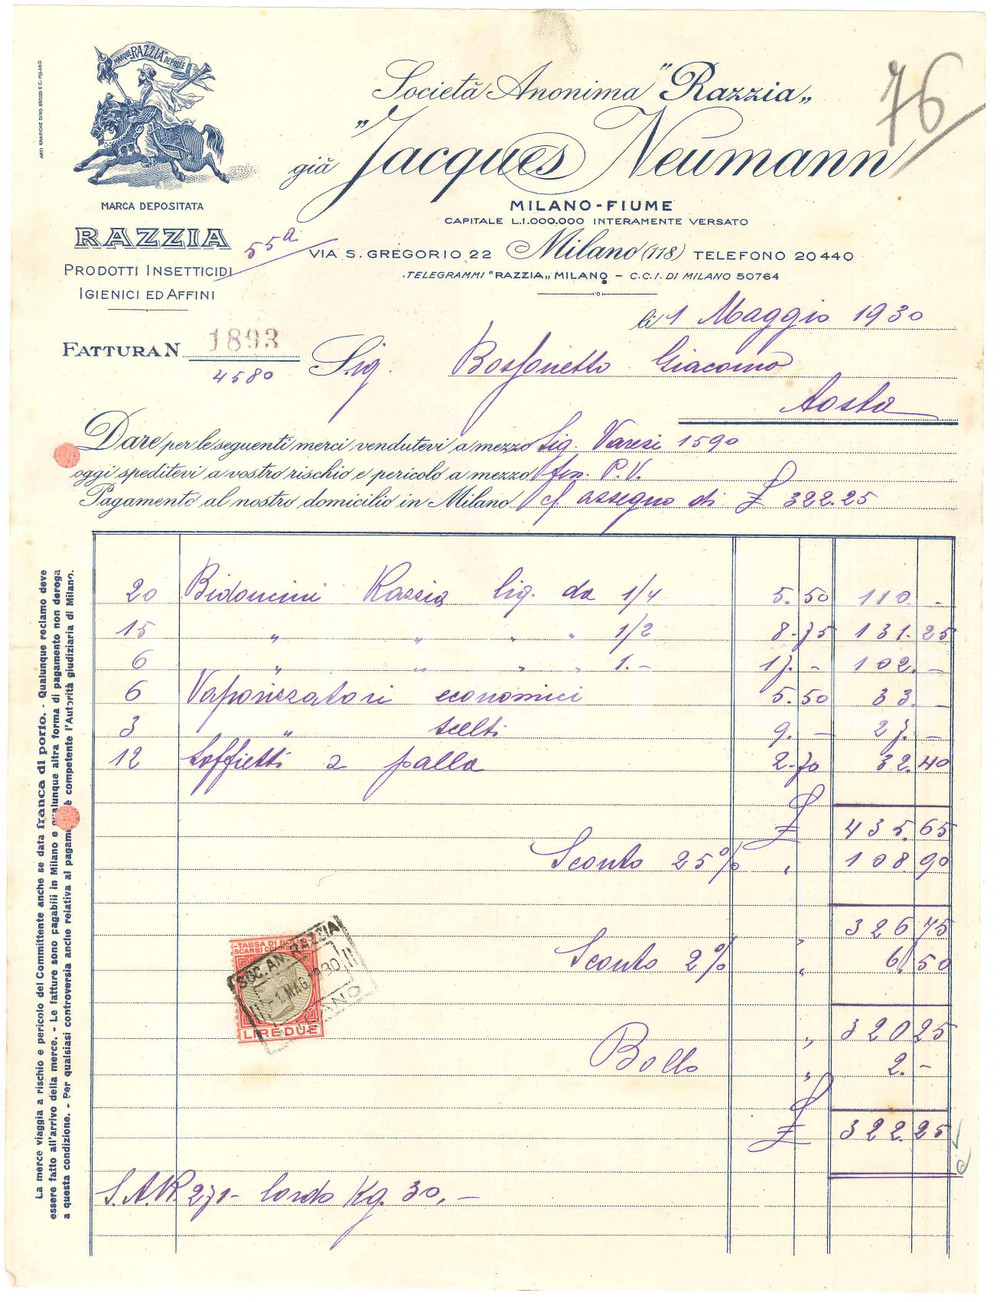 ARTI GRAFICHE DINO GROSSI E C.-MILANO
MARQUE RAZZIA DÉPOSÉE
MARCA DEPOSITATA
RAZZIA
PRODOTTI INSETTICIDI
IGIENICI ED AFFINI
55a
76
Società Anonima "Razzia„
già "Jacques Neumann„
MILANO-FIUME
CAPITALE L.1.000.000 INTERAMENTE VERSATO
VIA S. GREGORIO 22 Milano (118) TELEFONO 20440
TELEGRAMMI "RAZZIA„ MILANO – C.C.I. DI MILANO 50764
li 1 Maggio 1930
FATTURA N 1893
4580
Sig. Giacomo
Aosta
Dare per le seguenti merci vendutevi a mezzo Sig. Varesi 1590
oggi speditevi a vostro rischio e pericolo a mezzo P.V.
Pagamento al nostro domicilio in Milano c/ assegno di £ 322.25
20 Bidoncini Razzia liq. da 1/4 5.50 110.-
15 " " " " 1/2 8.75 131.25
6 " " " " 1.- 17.- 102.-
6 Vaporizzatori economici 5.50 33.-
3 " scelti 9.- 27.-
12 Soffietti a palla 2.70 32.40
£ 435.65
Sconto 25% " 108.90
" 326.75
Sconto 2% " 6.50
" 320.25
Bollo " 2.-
£ 322.25
S.A.R 271- lordo Kg. 30,-
TASSA DI BOLLO
SCAMBI COMMERCIALI
SOC. AN. RAZZIA
-1.MAG.1930
MILANO
LIRE DUE
La merce viaggia a rischio e pericolo del Committente anche se data franca di porto. - Qualunque reclamo deve
essere fatto all'arrivo della merce. - Le fatture sono pagabili in Milano e qualunque altra forma di pagamento non deroga
a questa condizione. - Per qualsiasi controversia anche relativa al pagamento è competente l'Autorità giudiziaria di Milano.